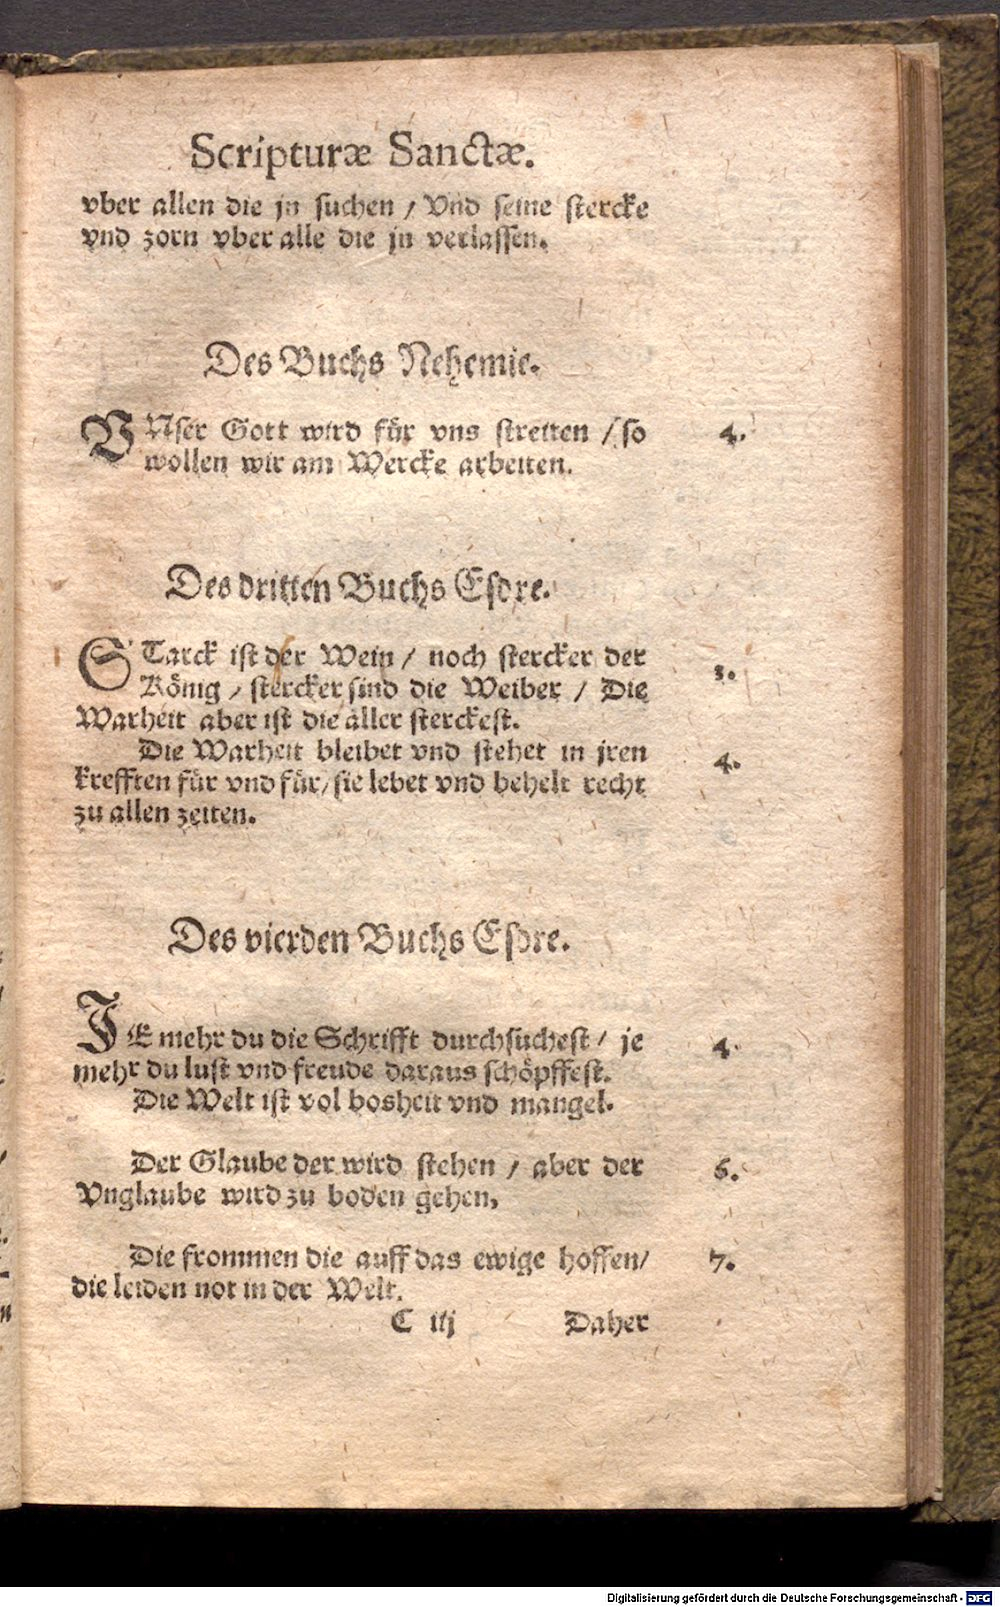 Scripturæ Sanctæ.
vber allen die jn suchen / Vnd seine stercke
vnd zorn vber alle die jn verlassen.
Des Buchs Nehemie.
VNser Gott wird für vns streiten / so
wollen wir am Wercke arbeiten.
4.
Des dritten Buchs Esdre.
STarck ist der Wein / noch stercker der
König / stercker sind die Weiber / Die
Warheit aber ist die aller sterckest.
3.
Die Warheit bleibet vnd stehet in jren
krefften für vnd für / sie lebet vnd behelt recht
zu allen zeiten.
4.
Des vierden Buchs Esdre.
JE mehr du die Schrifft durchsuchest / je
mehr du lust vnd freude daraus schöpffest.
4.
Die Welt ist vol bosheit vnd mangel.
Der Glaube der wird stehen / aber der
Vnglaube wird zu boden gehen,
6.
Die frommen die auff das ewige hoffen /
die leiden not in der Welt.
7.
C iij Daher
Digitalisierung gefördert durch die Deutsche Forschungsgemeinschaft - DFG